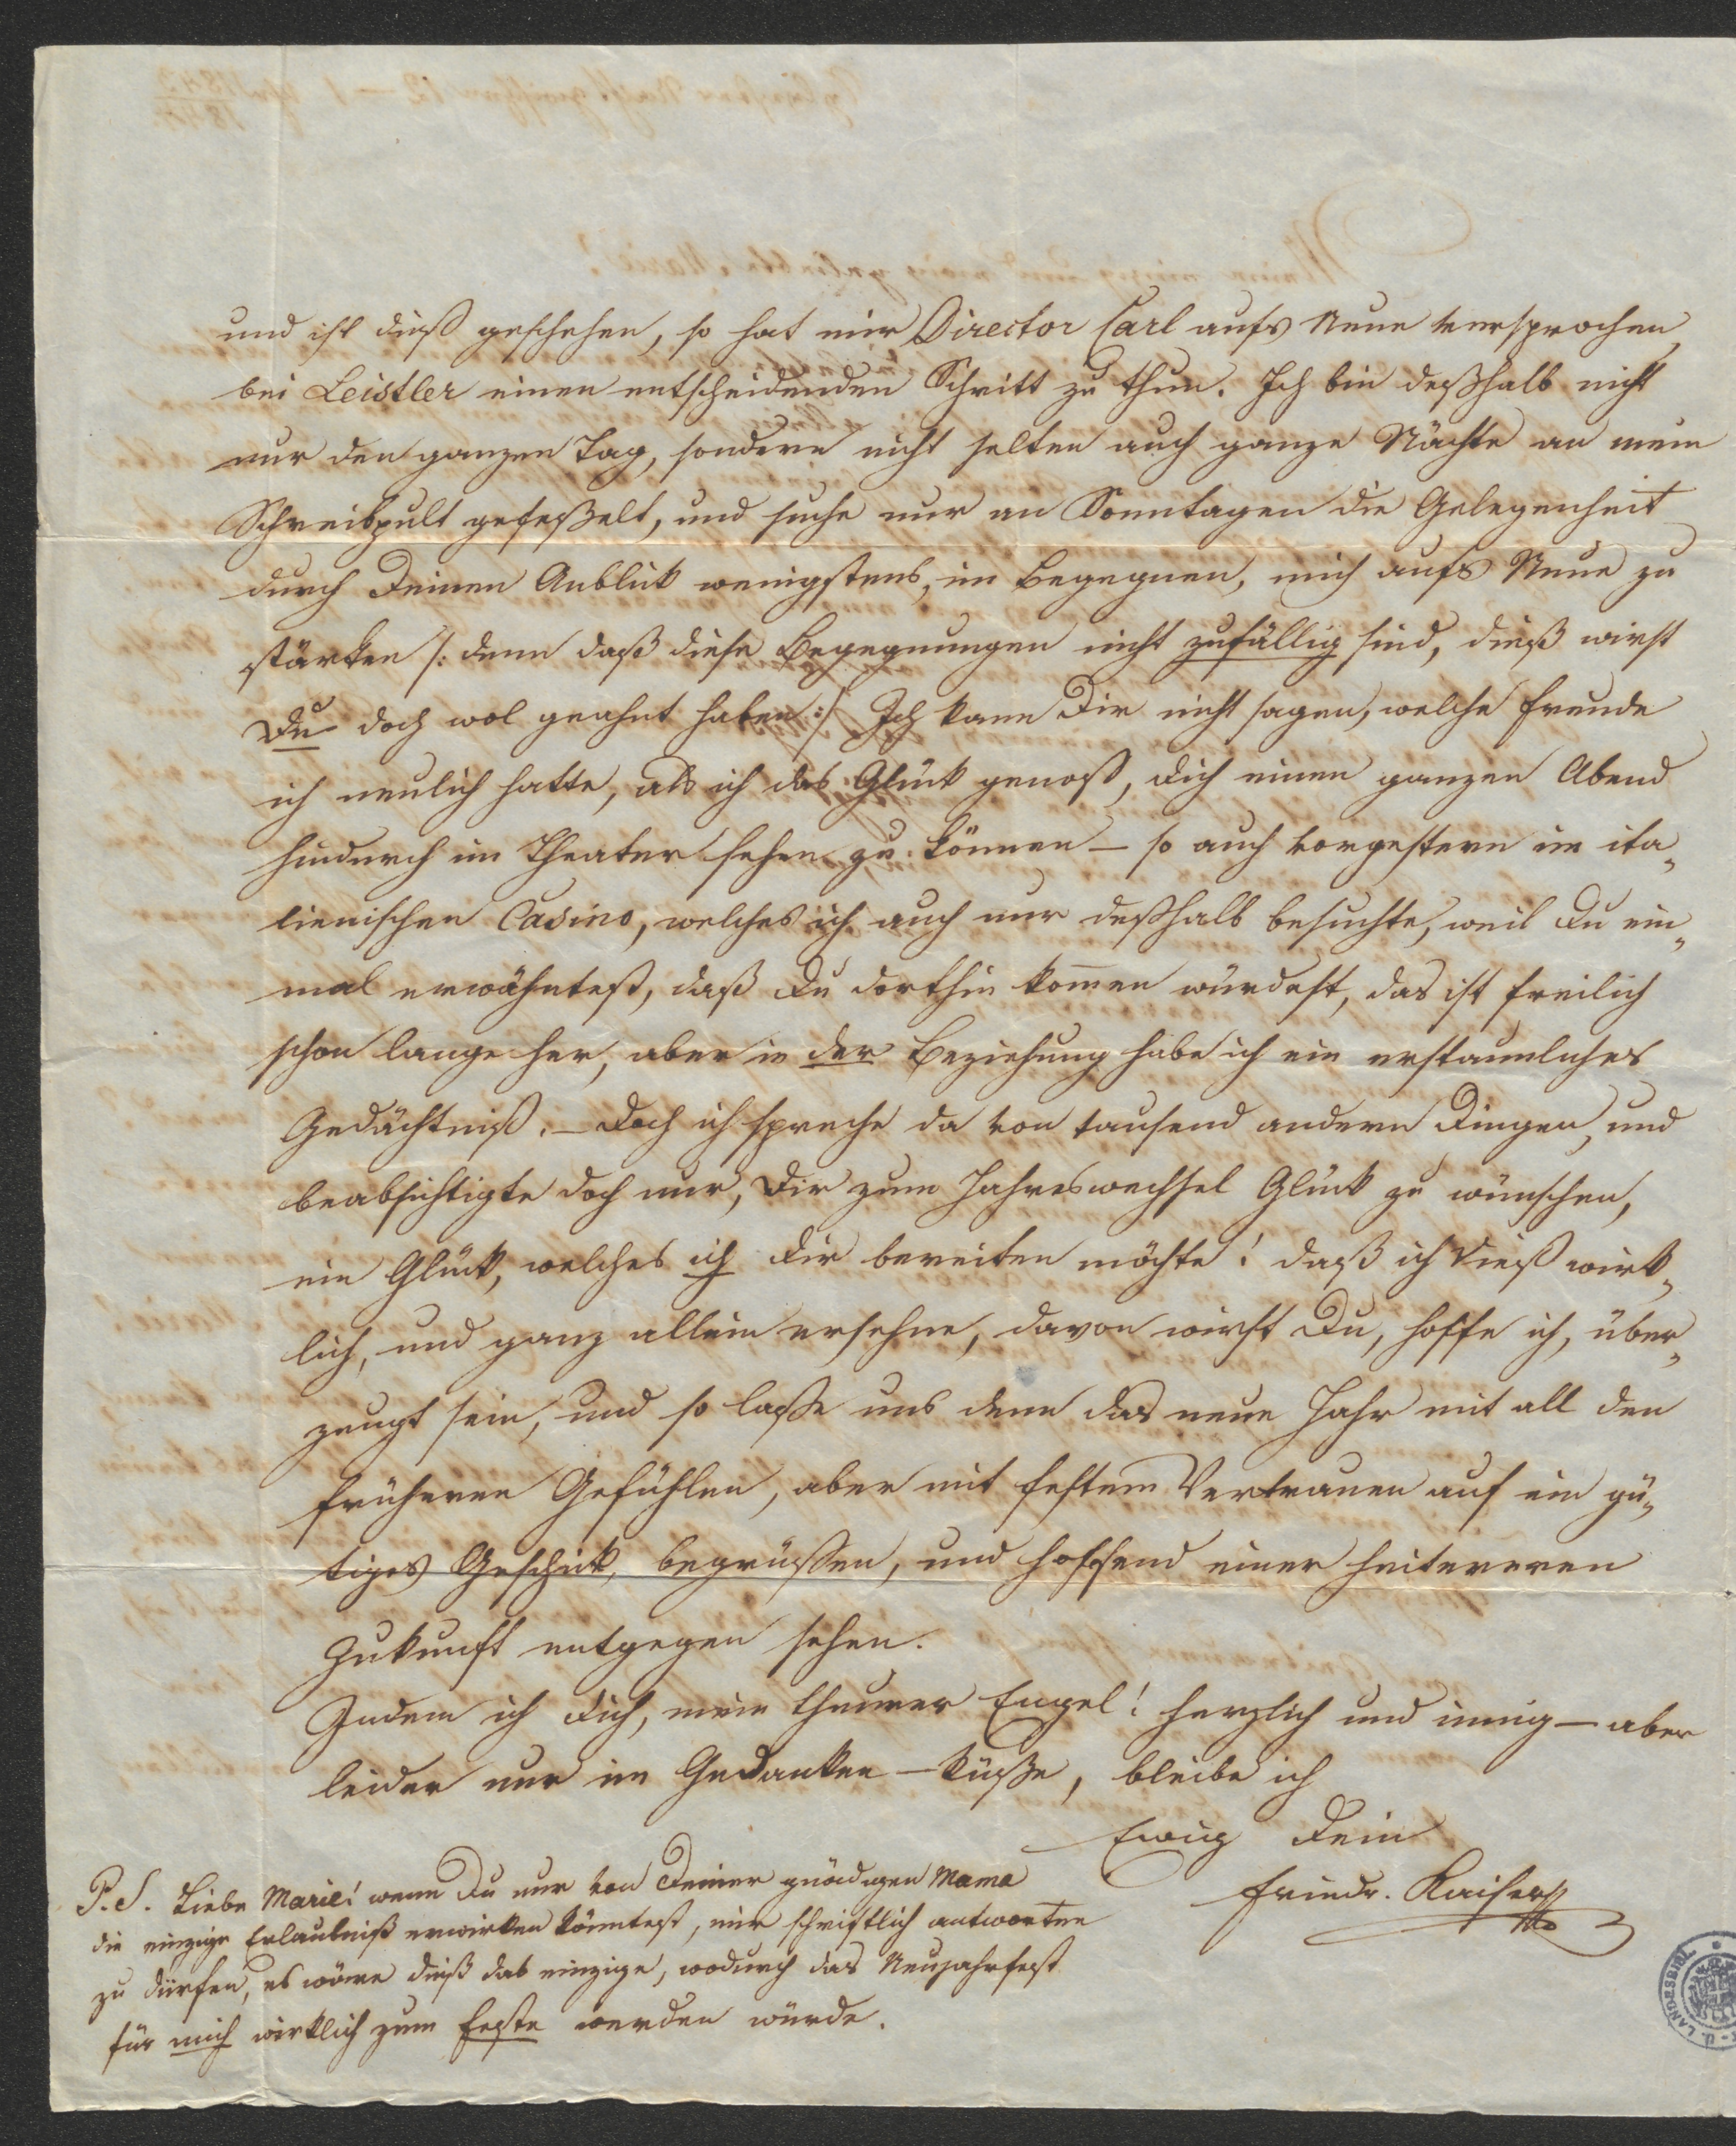 und ist dieß geschehen, so hat mir Director Carl aufs Neue versprochen,
bei Leistler einen entscheidenden Schritt zu thun. Ich bin deßhalb nicht
nur den ganzen Tag, sondern nicht selten auch ganze Nächte an mein
Schreibpult gefeßelt, und suche nur an Sonntagen die Gelegenheit
durch Deinen Anblick wenigstens, im Begegnen, mich aufs Neue zu
stärken /: denn daß diese Begegnungen nicht zufällig sind, dieß wirst
Du doch wol geahnt haben :/ Ich kann Dir nicht sagen, welche Freude
ich neulich hatte, als ich das Glück genoß, Dich einen ganzen Abend
hindurch im Theater sehen zu können – so auch vorgestern im ita„
lienischen Casino, welches ich auch nur deßhalb besuchte, weil Du ein„
mal erwähntest, daß Du dorthin kom̄en würdest, das ist freilich
schon lange her, aber in der Beziehung habe ich ein erstaunliches
Gedächtniß. – Doch ich spreche da von tausend andern Dingen, und
beabsichtigte doch nur, Dir zum Jahreswechsel Glück zu wünschen,
ein Glück, welches ich Dir bereiten möchte! daß ich dieß wirk„
lich, und ganz allein ersehne, davon wirst Du, hoffe ich, über„
zeugt sein, und so laße uns denn das neue Jahr mit all den
früheren Gefühlen, aber mit festem Vertrauen auf ein gü„
tiges Geschick, begrüßen, und hoffend einer heitereren
Zukunft entgegen sehen.
Indem ich Dich, mein theurer Engel! herzlich und innig – aber
leider nur in Gedanken – küße, bleibe ich
Ewig Dein
Friedr. Kaiser
P.S. Liebe Marie! wenn Du nur von Deiner gnädigen Mama
die einzige Erlaubniß erwirken könntest, mir schriftlich antworten
zu dürfen, es wäre dieß das einzige, wodurch das Neujahrfest
für mich wirklich zum Feste werden würde.
LANDESBIBL.